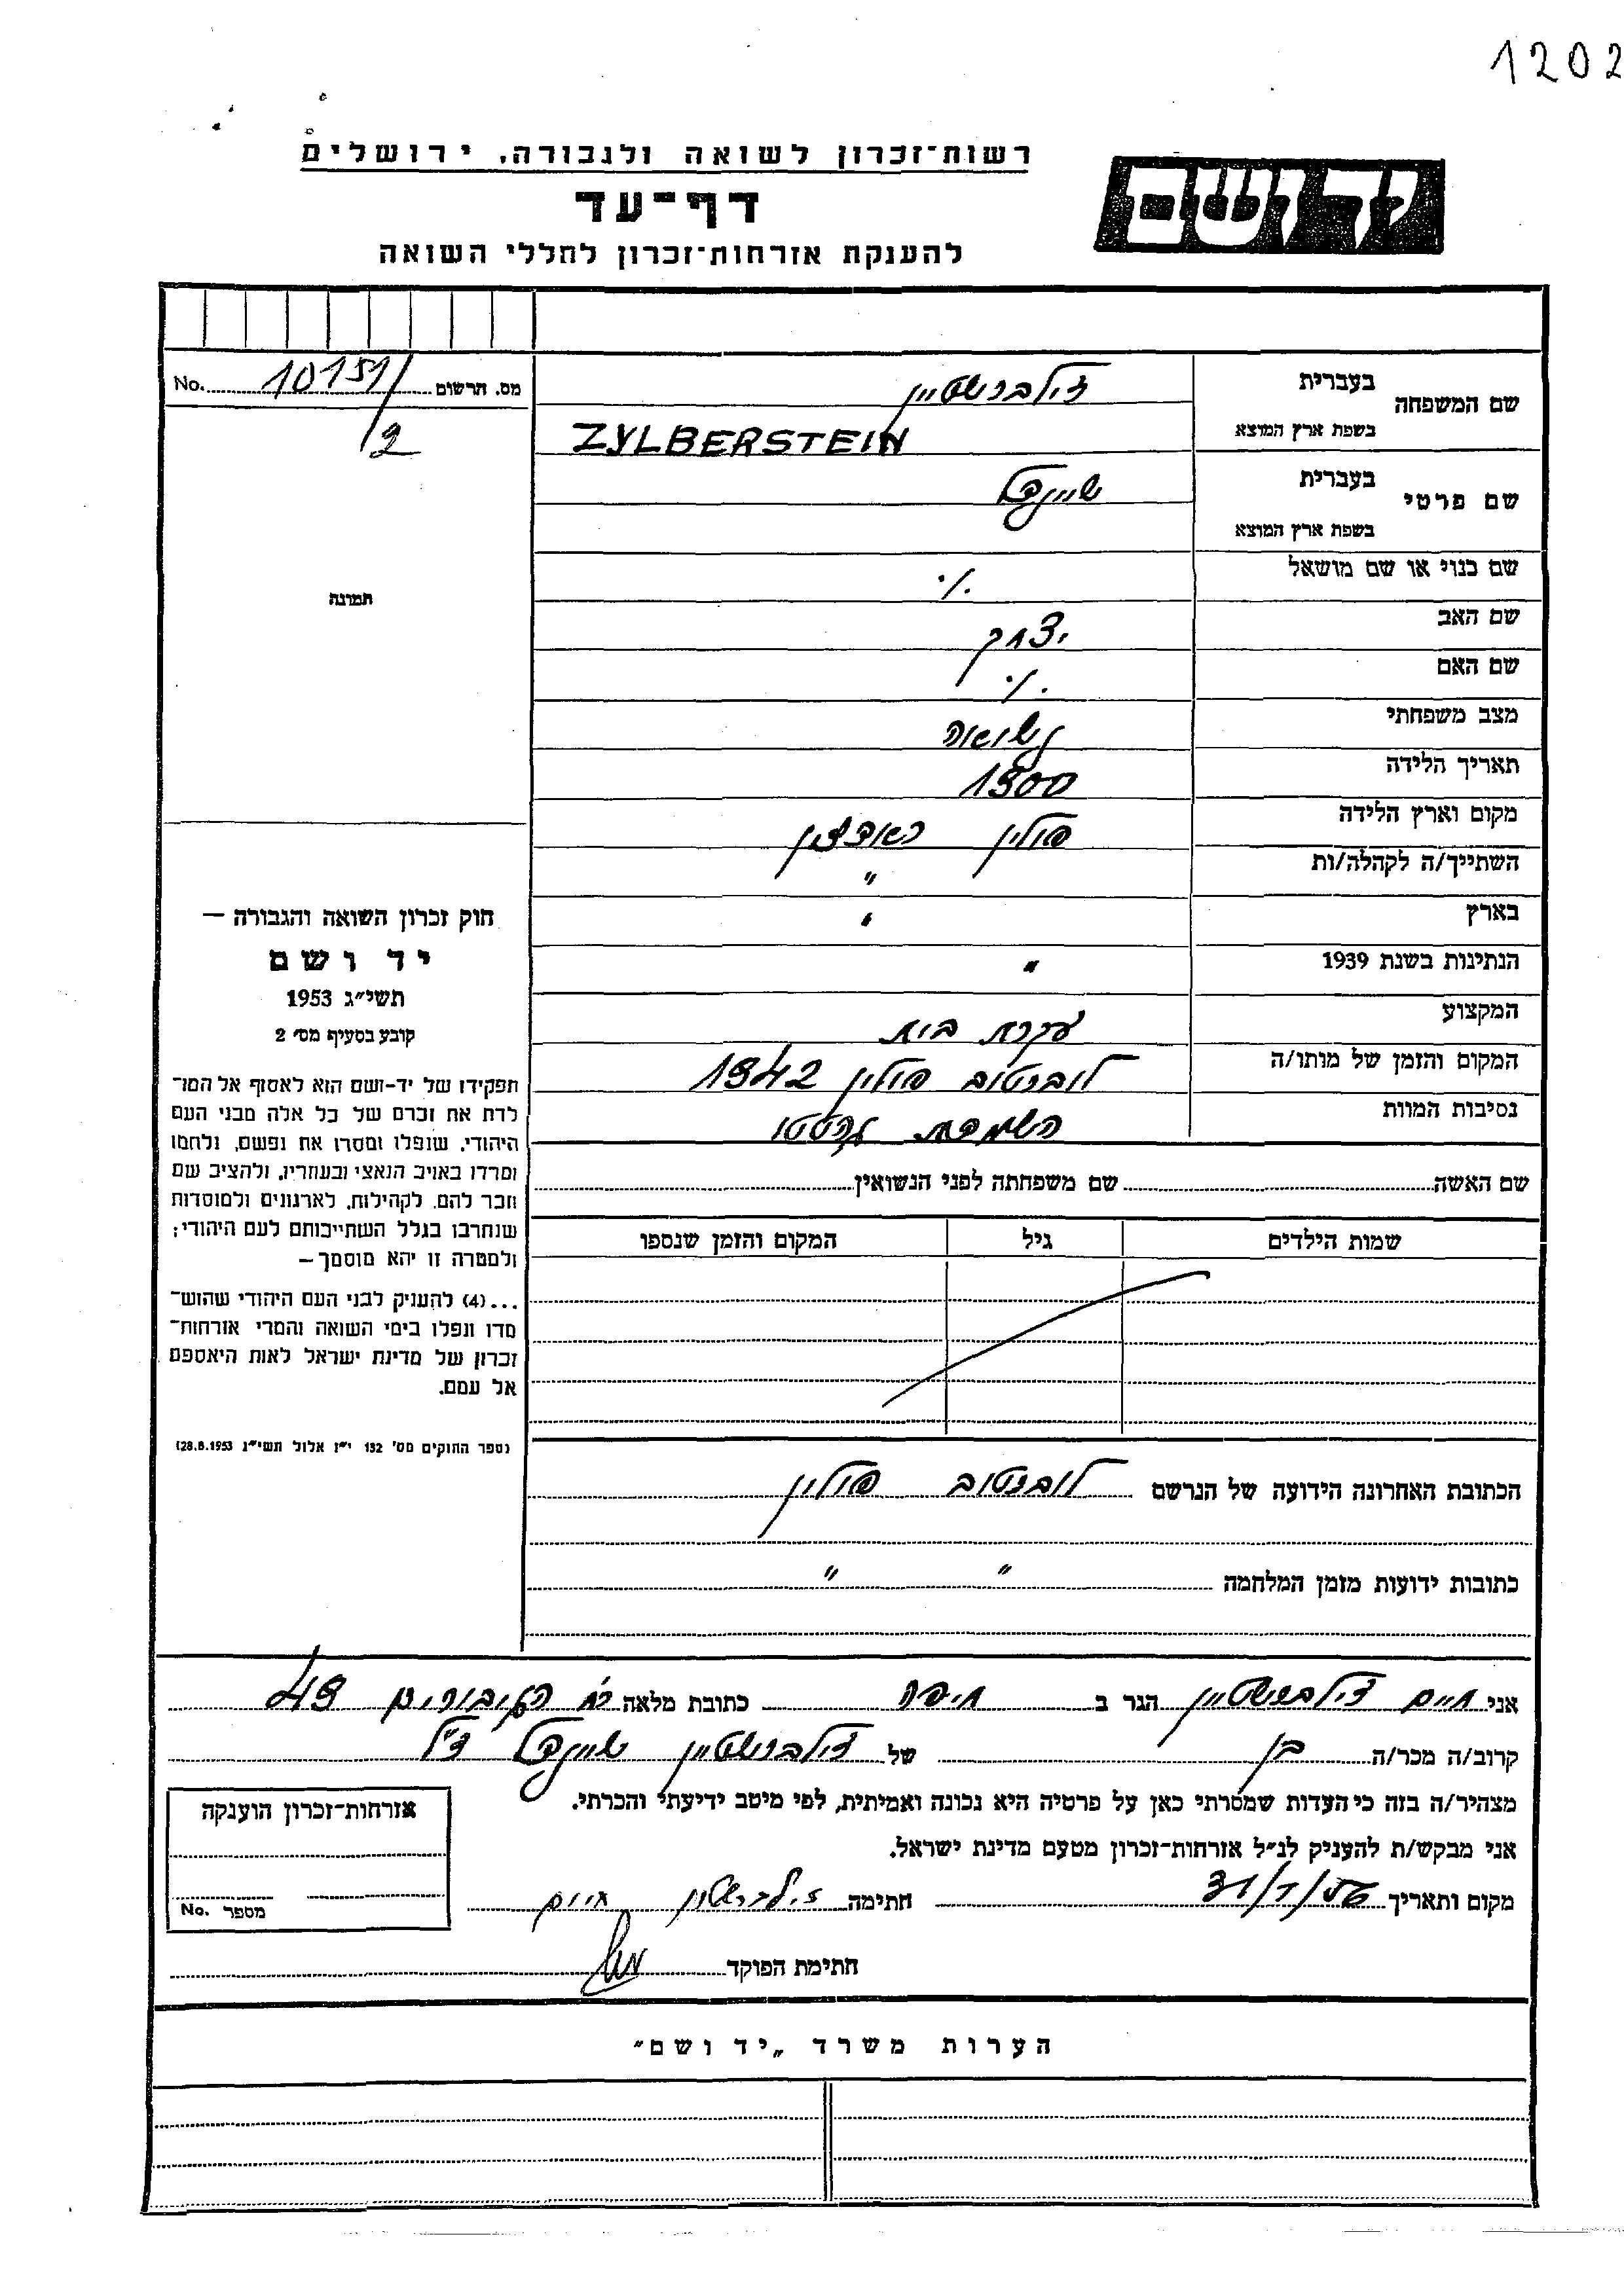 1202
רשות־זכרון לשואה ולגבורה, ירושלים
יד ושם
דף־עד
להענקת אזרחות־זכרון לחללי השואה
מס. הרשום 10151/2 No.
שם המשפחה בעברית זילברשטיין
בשפת ארץ המוצא ZYLBERSTEIN
שם פרטי בעברית שיינדל
בשפת ארץ המוצא
שם כנוי או שם מושאל ./.
שם האב יצחק
שם האם ./.
מצב משפחתי נשואה
תאריך הלידה 1900
מקום וארץ הלידה פולין
השתייך/ה לקהלה/ות "
בארץ "
הנתינות בשנת 1939 "
המקצוע עקרת בית
המקום והזמן של מותו/ה לוברטוב פולין 1942
נסיבות המוות השמדת גהטטו
תמונה
חוק זכרון השואה והגבורה —
יד ושם
תשי״ג 1953
קובע בסעיף מס׳ 2
תפקידו של יד-ושם הוא לאסוף אל המו־
לדת את זכרם של כל אלה מבני העם
היהודי, שנפלו ומסרו את נפשם, נלחמו
ומרדו באויב הנאצי ובעוזריו, ולהציב שם
וזכר להם, לקהילות, לארגונים ולמוסדות
שנחרבו בגלל השתייכותם לעם היהודי;
ולמטרה זו יהא מוסמך —
...(4) להעניק לבני העם היהודי שהוש־
מדו ונפלו בימי השואה והמרי אזרחות־
זכרון של מדינת ישראל לאות היאספם
אל עמם.
(ספר החוקים מס׳ 132 י״ז אלול תשי״ג 28.8.1953)
שם האשה שם משפחתה לפני הנשואין
שמות הילדים גיל המקום והזמן שנספו
הכתובת האחרונה הידועה של הנרשם לוברטוב פולין
כתובות ידועות מזמן המלחמה " "
אני חיים זילברשטיין הגר ב חיפה כתובת מלאה 49
קרוב/ה מכר/ה בן של זילברשטיין שיינדל ז"ל
מצהיר/ה בזה כי העדות שמסרתי כאן על פרטיה היא נכונה ואמיתית, לפי מיטב ידיעתי והכרתי.
אני מבקש/ת להעניק לנ״ל אזרחות־זכרון מטעם מדינת ישראל.
מקום ותאריך 31/1/56 חתימה זילברשטין חיים
חתימת הפוקד
אזרחות־זכרון הוענקה
מספר No.
הערות משרד „יד ושם"